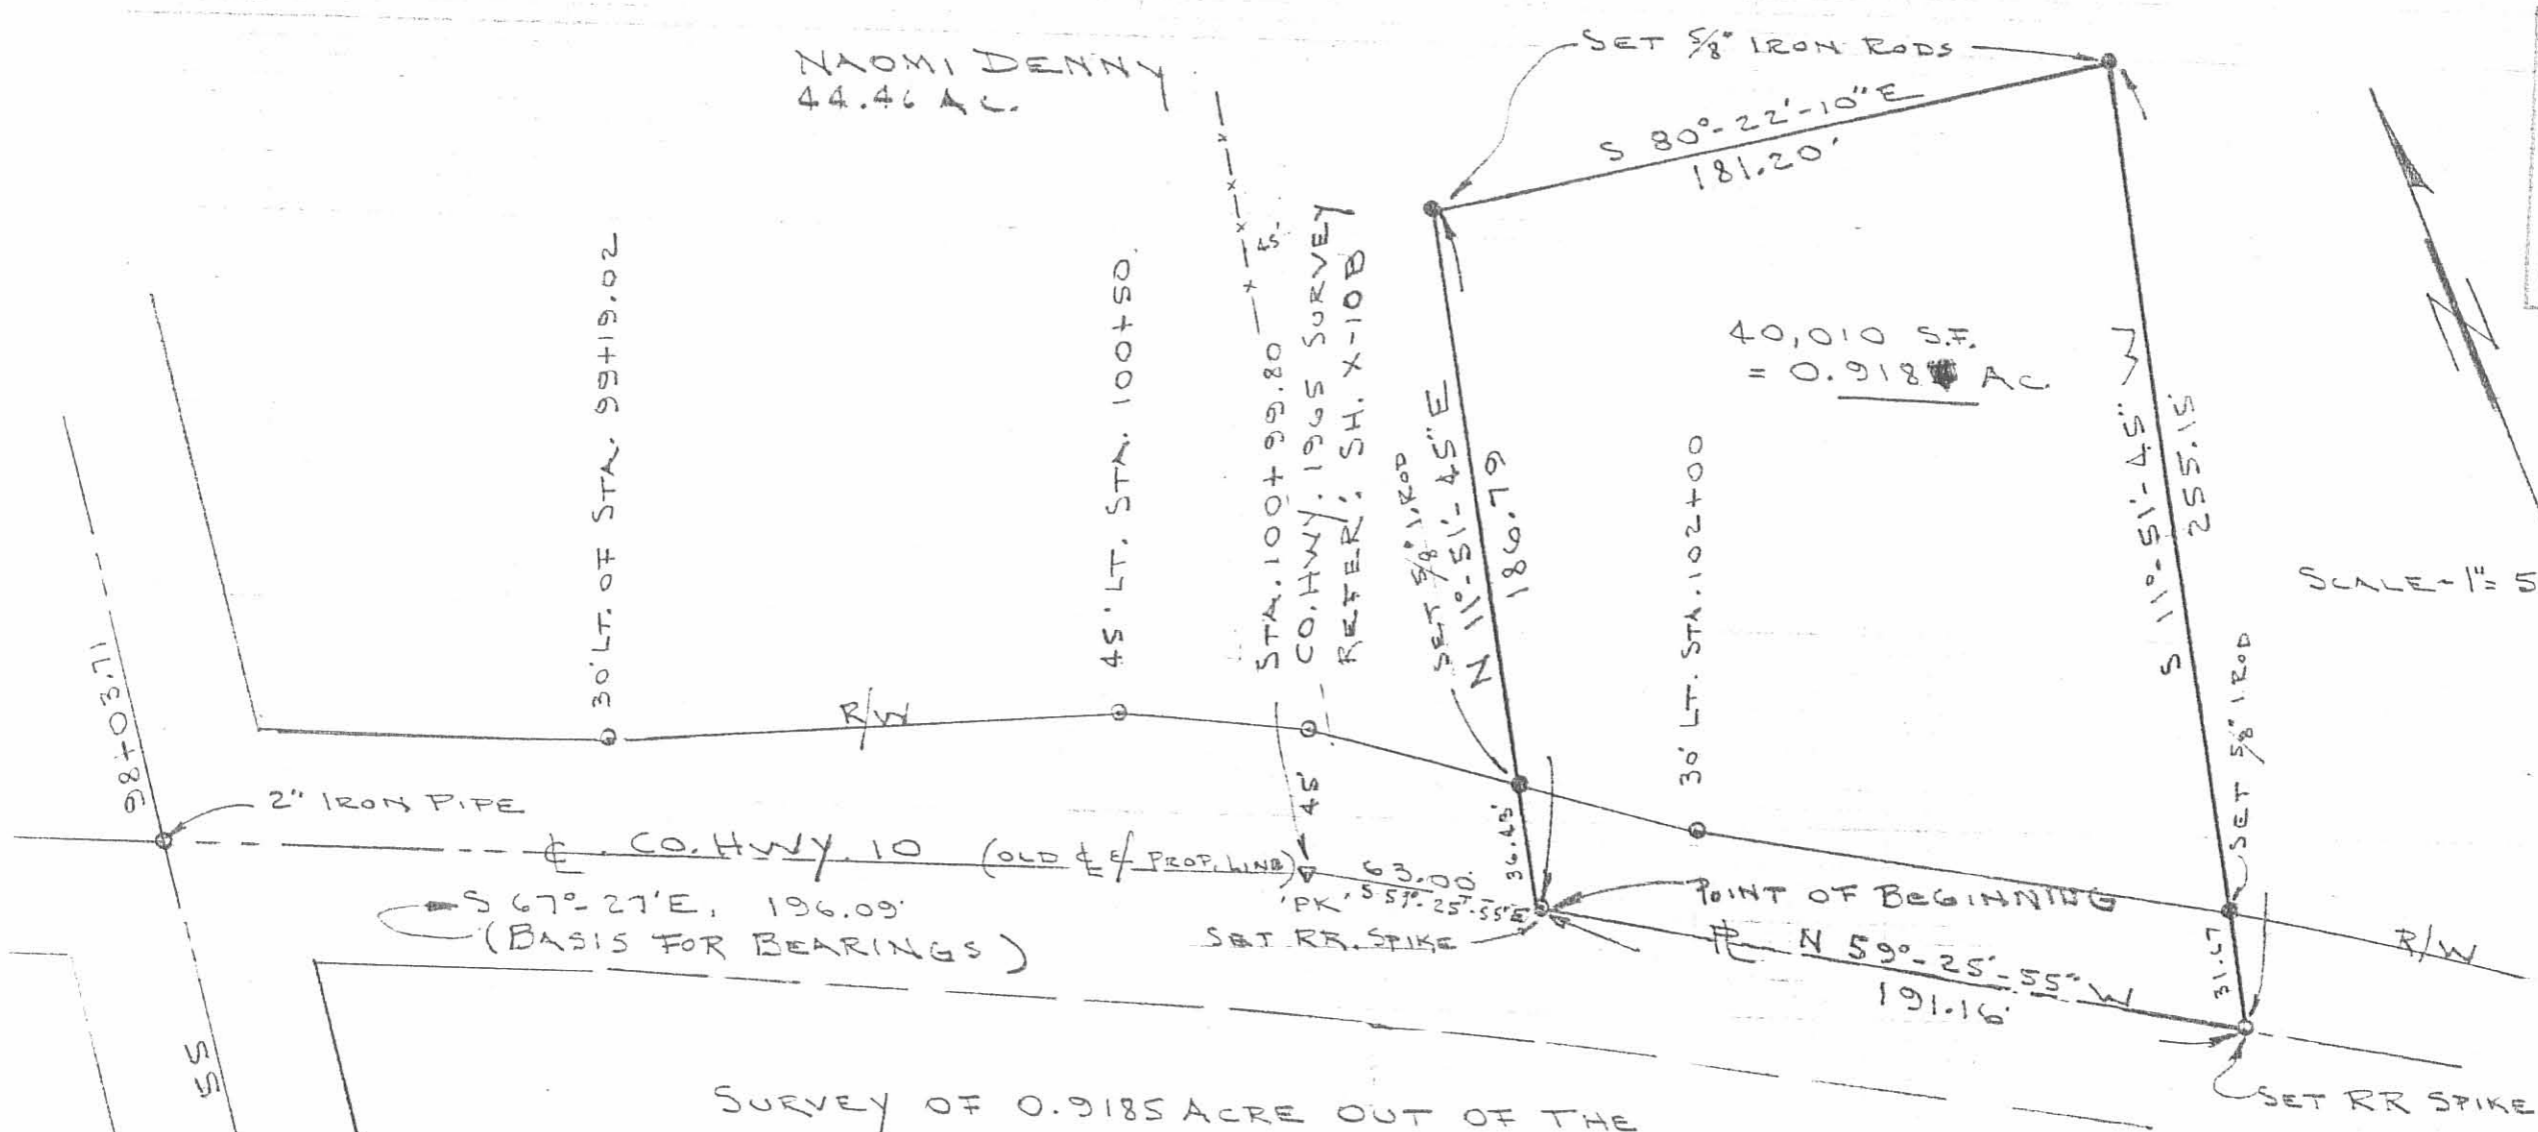 NAOMI DENNY
44.46 AC.
SET 5/8" IRON RODS
S 80°-22'-10" E
181.20'
40,010 S.F.
= 0.918 AC.
30' LT. OF STA. 99+19.02
45' LT. STA. 100+50.
45'
STA. 100+99.80
CO. HWY. 1965 SURVEY
REFER: SH. X-10B
SET 5/8" I. ROD
N 11°-51'-45" E
186.79
30' LT. STA. 102+00
S 11°-51'-45" W
255.15
SCALE - 1" = 5
SET 5/8" I ROD
98+03.71
R/W
2" IRON PIPE
45'
℄ CO. HWY. 10 (OLD ℄ & PROP. LINE)
63.00
'PK' S 59°-25'-55" E
36.43'
S 67°-27'E, 196.09'
(BASIS FOR BEARINGS)
SET RR. SPIKE
POINT OF BEGINNING
PL N 59°-25'-55" W
191.16'
31.67
R/W
55
SET RR SPIKE
SURVEY OF 0.9185 ACRE OUT OF THE